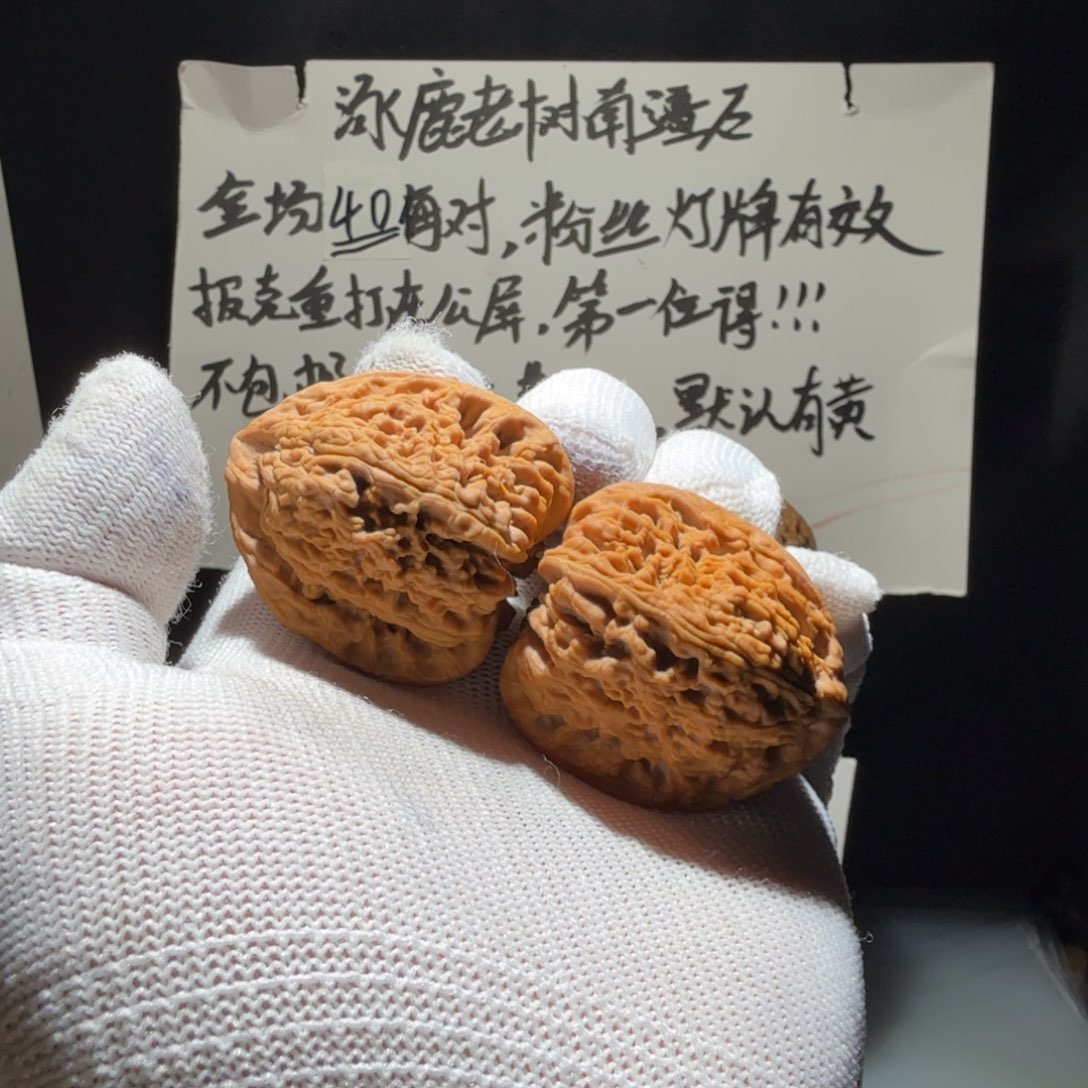 涿鹿老树南疆石
全场40每对,粉丝灯牌有效
报克重打在公屏.第一位得!!!
不包邮 ,默认有黄